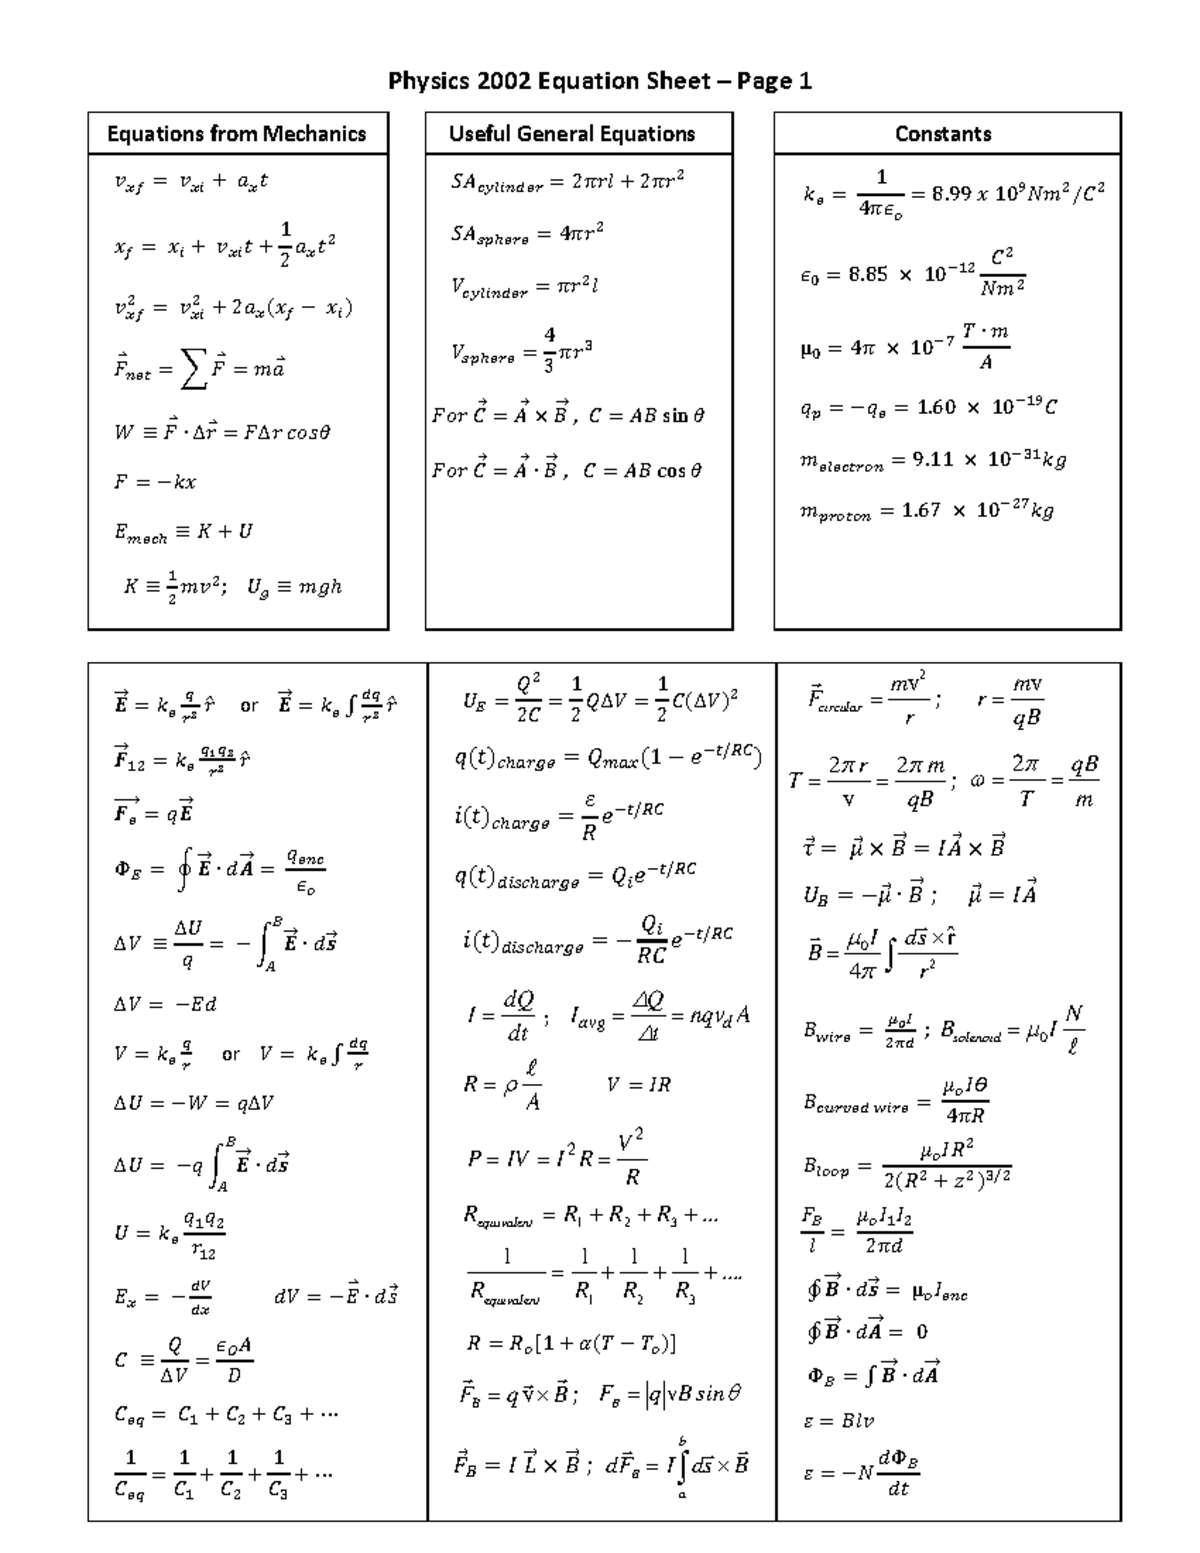 Physics 2002 Equation Sheet – Page 1
Equations from Mechanics
v_{xf} = v_{xi} + a_x t
x_f = x_i + v_{xi}t + \frac{1}{2}a_x t^2
v_{xf}^2 = v_{xi}^2 + 2a_x(x_f − x_i)
\vec{F}_{net} = ∑ \vec{F} = m\vec{a}
W ≡ \vec{F} · Δ\vec{r} = FΔr cosθ
F = −kx
E_{mech} ≡ K + U
K ≡ \frac{1}{2}mv^2; U_g ≡ mgh
Useful General Equations
SA_{cylinder} = 2πrl + 2πr^2
SA_{sphere} = 4πr^2
V_{cylinder} = πr^2 l
V_{sphere} = \frac{4}{3}πr^3
For \vec{C} = \vec{A} × \vec{B} , C = AB sin θ
For \vec{C} = \vec{A} · \vec{B} , C = AB cos θ
Constants
k_e = \frac{1}{4πϵ_o} = 8.99 x 10^9 Nm^2/C^2
ϵ_0 = 8.85 × 10^{−12} \frac{C^2}{Nm^2}
μ_0 = 4π × 10^{−7} \frac{T · m}{A}
q_p = −q_e = 1.60 × 10^{−19}C
m_{electron} = 9.11 × 10^{−31}kg
m_{proton} = 1.67 × 10^{−27}kg
\vec{E} = k_e \frac{q}{r^2} \hat{r} or \vec{E} = k_e ∫ \frac{dq}{r^2} \hat{r}
\vec{F}_{12} = k_e \frac{q_1 q_2}{r^2} \hat{r}
\vec{F_e} = q\vec{E}
Φ_E = ∮ \vec{E} · d\vec{A} = \frac{q_{enc}}{ϵ_o}
ΔV ≡ \frac{ΔU}{q} = − ∫_A^B \vec{E} · d\vec{s}
ΔV = −Ed
V = k_e \frac{q}{r} or V = k_e ∫ \frac{dq}{r}
ΔU = −W = qΔV
ΔU = −q ∫_A^B \vec{E} · d\vec{s}
U = k_e \frac{q_1 q_2}{r_{12}}
E_x = − \frac{dV}{dx} dV = −\vec{E} · d\vec{s}
C ≡ \frac{Q}{ΔV} = \frac{ϵ_O A}{D}
C_{eq} = C_1 + C_2 + C_3 + ···
\frac{1}{C_{eq}} = \frac{1}{C_1} + \frac{1}{C_2} + \frac{1}{C_3} + ···
U_E = \frac{Q^2}{2C} = \frac{1}{2}QΔV = \frac{1}{2}C(ΔV)^2
q(t)_{charge} = Q_{max}(1 − e^{−t/RC})
i(t)_{charge} = \frac{ε}{R}e^{−t/RC}
q(t)_{discharge} = Q_i e^{−t/RC}
i(t)_{discharge} = −\frac{Q_i}{RC}e^{−t/RC}
I = \frac{dQ}{dt} ; I_{avg} = \frac{ΔQ}{Δt} = nqv_d A
R = ρ\frac{ℓ}{A} V = IR
P = IV = I^2 R = \frac{V^2}{R}
R_{equivalent} = R_1 + R_2 + R_3 + ...
\frac{1}{R_{equivalent}} = \frac{1}{R_1} + \frac{1}{R_2} + \frac{1}{R_3} + ....
R = R_o[1 + α(T − T_o)]
\vec{F}_B = q\vec{v} × \vec{B} ; F_B = |q|vB sin θ
\vec{F}_B = I \vec{L} × \vec{B} ; d\vec{F}_B = I∫_a^b d\vec{s} × \vec{B}
\vec{F}_{circular} = \frac{mv^2}{r} ; r = \frac{mv}{qB}
T = \frac{2π r}{v} = \frac{2π m}{qB} ; ω = \frac{2π}{T} = \frac{qB}{m}
\vec{τ} = \vec{μ} × \vec{B} = I\vec{A} × \vec{B}
U_B = −\vec{μ} · \vec{B} ; \vec{μ} = I\vec{A}
\vec{B} = \frac{μ_0 I}{4π} ∫ \frac{d\vec{s} × \hat{r}}{r^2}
B_{wire} = \frac{μ_o I}{2πd} ; B_{solenoid} = μ_0 I \frac{N}{ℓ}
B_{curved wire} = \frac{μ_o Iθ}{4πR}
B_{loop} = \frac{μ_o IR^2}{2(R^2 + z^2)^{3/2}}
\frac{F_B}{l} = \frac{μ_o I_1 I_2}{2πd}
∮ \vec{B} · d\vec{s} = μ_o I_{enc}
∮ \vec{B} · d\vec{A} = 0
Φ_B = ∫ \vec{B} · d\vec{A}
ε = Blv
ε = −N \frac{dΦ_B}{dt}